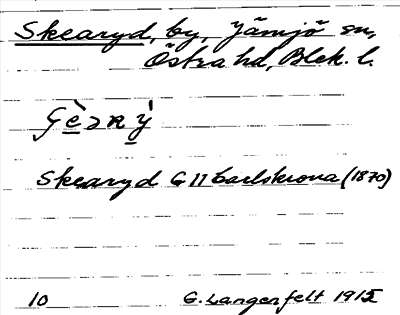 Skearyd, by, Jämjö sn,
Östra hd, Blek. l.
Skearyd G II Carlskrona (1870)
10 G. Langenfelt 1915